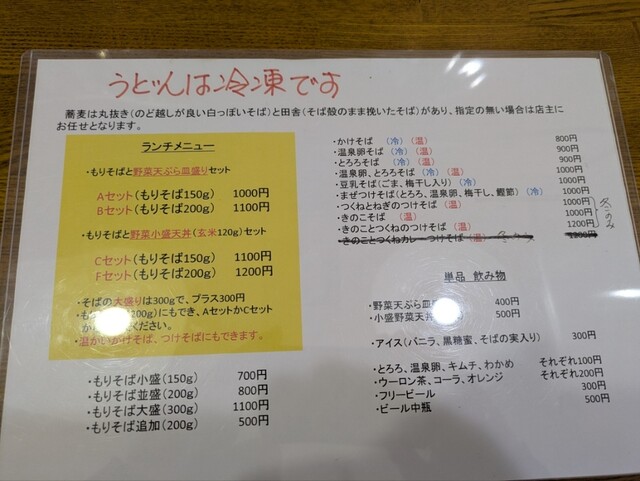 うどんは冷凍です
蕎麦は丸抜き(のど越しが良い白っぽいそば)と田舎(そば殻のまま挽いたそば)があり、指定の無い場合は店主に
お任せとなります。
ランチメニュー
・もりそばと野菜天ぷら皿盛りセット
Aセット(もりそば150g) 1000円
Bセット(もりそば200g) 1100円
・もりそばと野菜小盛天丼(玄米120g)セット
Cセット(もりそば150g) 1100円
Fセット(もりそば200g) 1200円
・そばの大盛りは300gで、プラス300円
200g)にもでき、AセットかCセット
ください。
・温かいかけそば、つけそばにもできます。
・もりそば小盛(150g) 700円
・もりそば並盛(200g) 800円
・もりそば大盛(300g) 1100円
・もりそば追加(200g) 500円
・かけそば (冷)(温) 800円
・温泉卵そば (冷)(温) 900円
・とろろそば (冷)(温) 900円
・温泉卵、とろろそば (冷)(温) 1000円
・豆乳そば(ごま、梅干し入り)(冷) 1000円
・まぜつけそば(とろろ、温泉卵、梅干し、鰹節)(冷) 1000円
・つくねとねぎのつけそば (温) 1000円
・きのこそば (温) 1000円
・きのことつくねのつけそば (温) 1200円
冬のみ
・きのことつくねカレーつけそば (温) 1200円
単品 飲み物
・野菜天ぷら皿 400円
・小盛野菜天丼 500円
・アイス(バニラ、黒糖蜜、そばの実入り) 300円
・とろろ、温泉卵、キムチ、わかめ それぞれ100円
・ウーロン茶、コーラ、オレンジ それぞれ200円
・フリービール 300円
・ビール中瓶 500円